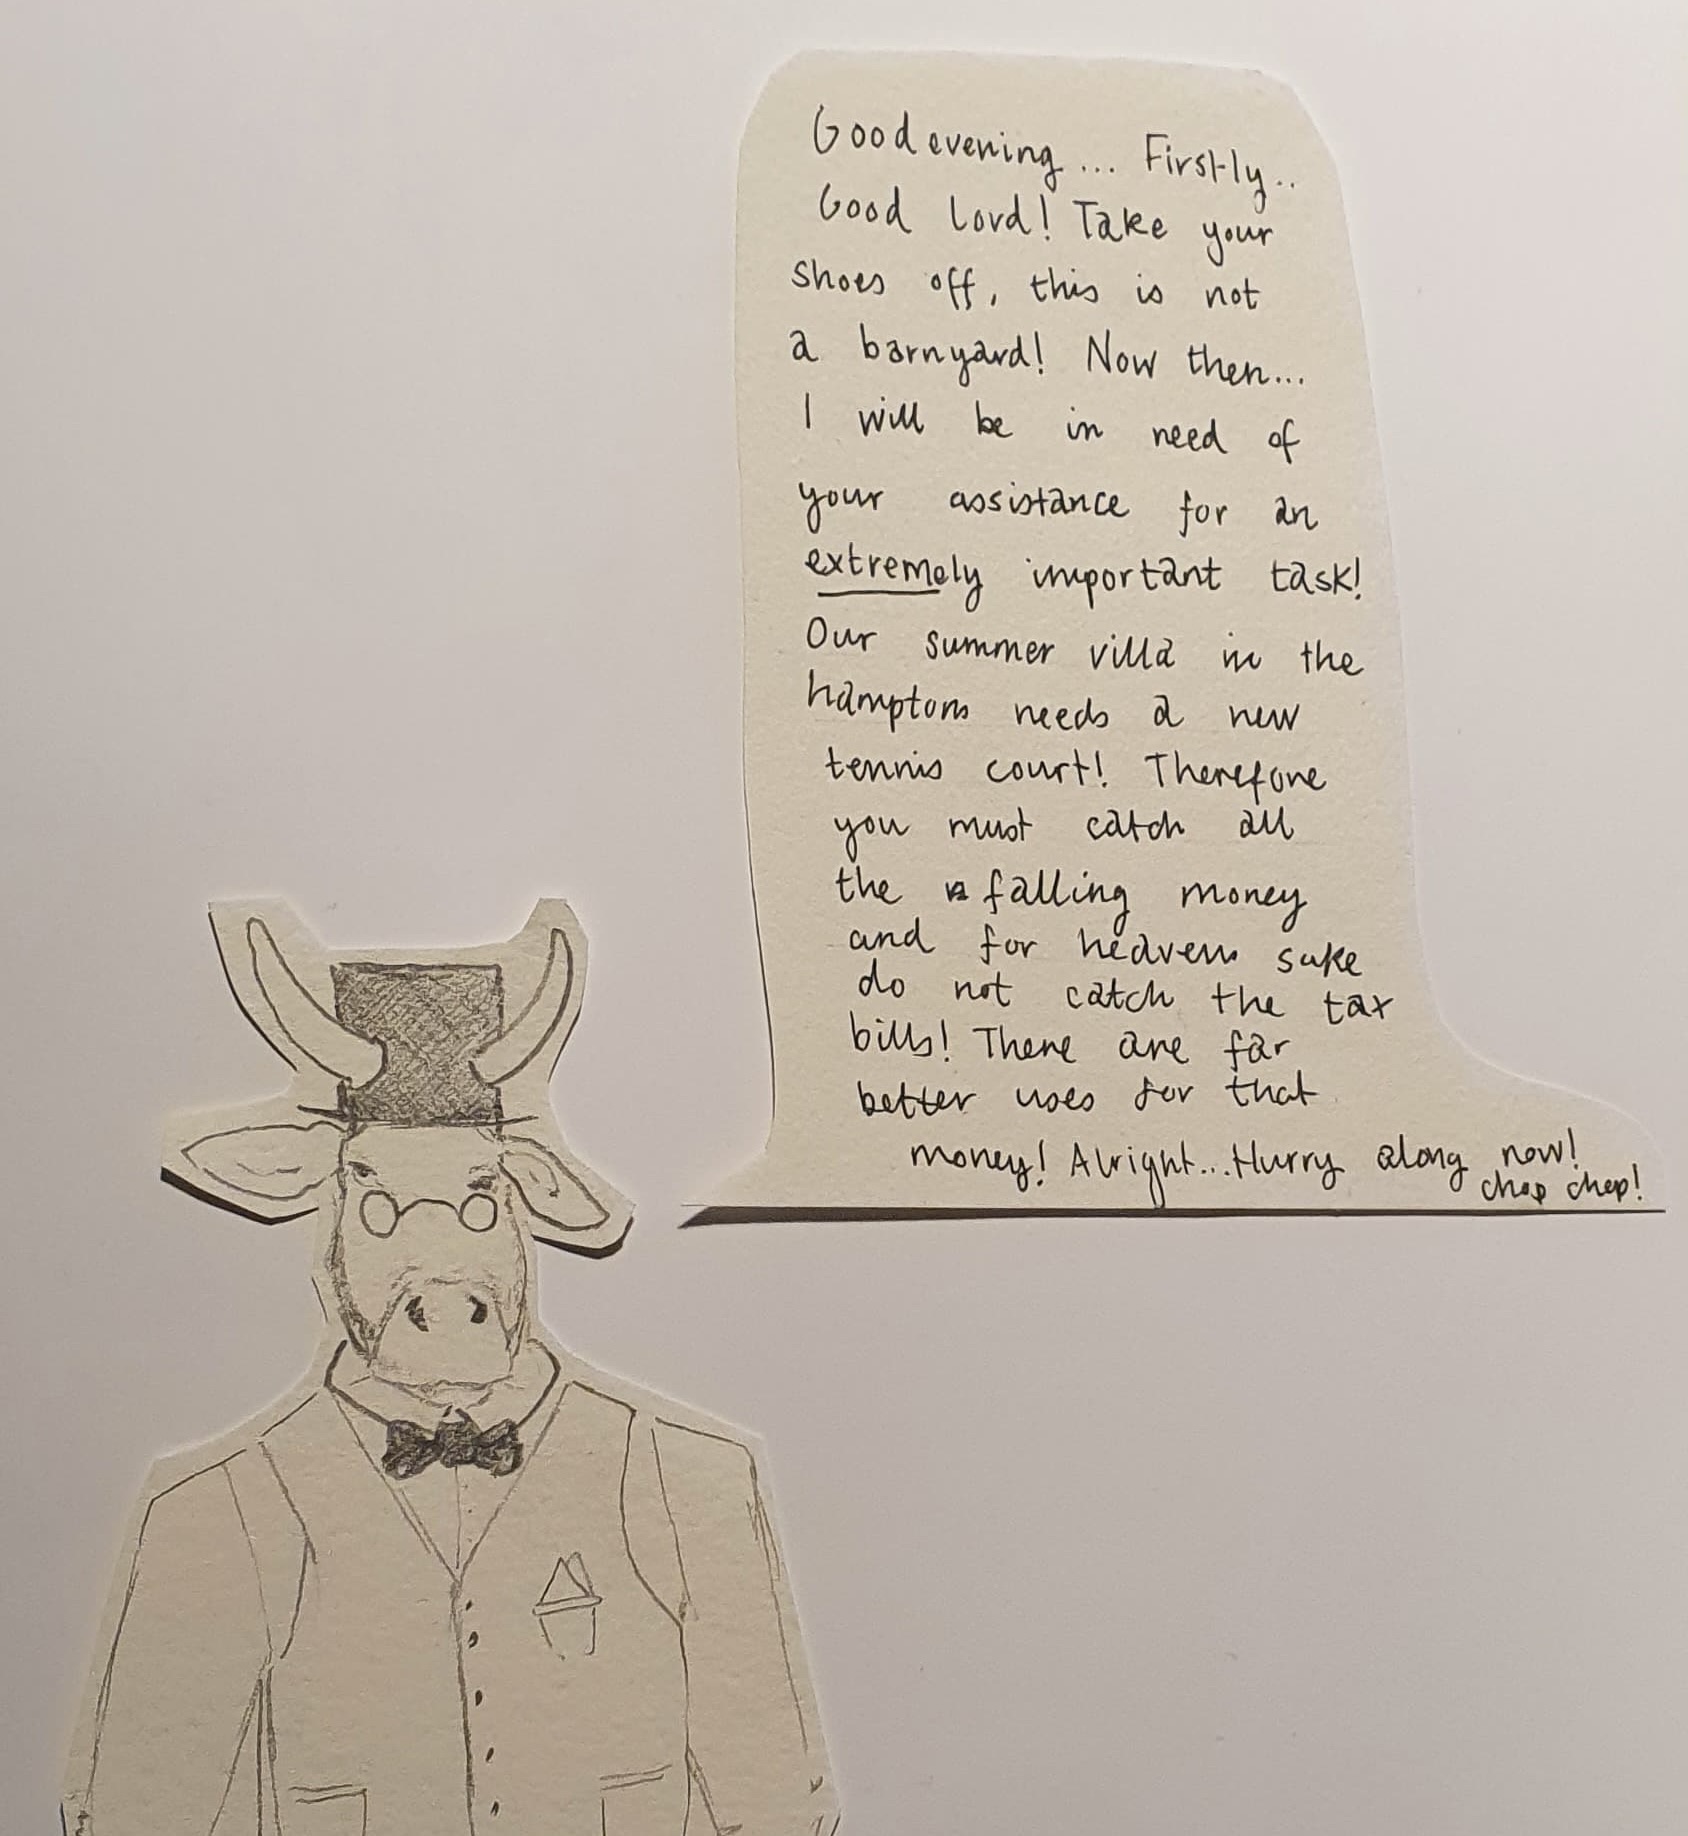 Good evening... Firstly..
Good Lord! Take your
shoes off, this is not
a barnyard! Now then...
I will be in need of
your assistance for an
extremely important task!
Our summer villa in the
hamptons needs a new
tennis court! Therefore
you must catch all
the falling money
and for heavens sake
do not catch the tax
bills! There are far
better uses for that
money! Alright...Hurry along now!
chop chop!